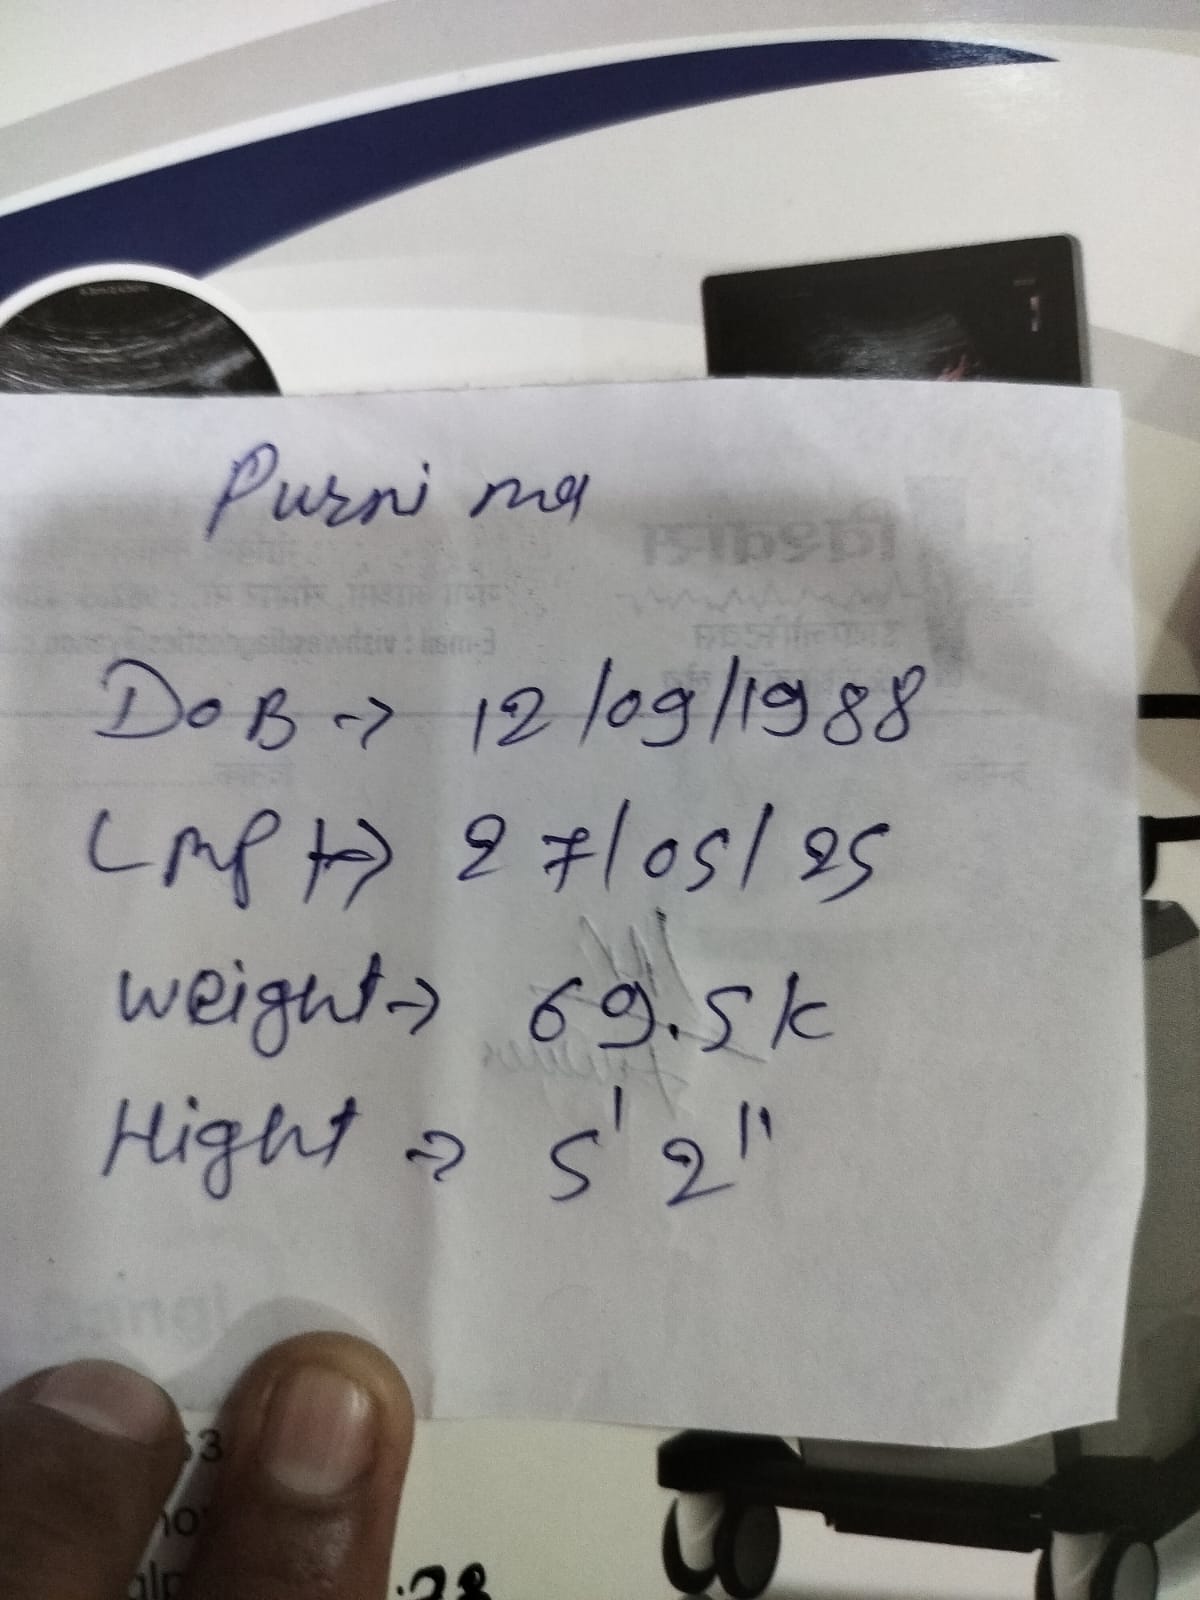 Purnima
DOB -> 12/09/1988
LMP -> 27/05/25
Weight -> 69.5k
Hight -> 5'2"
53